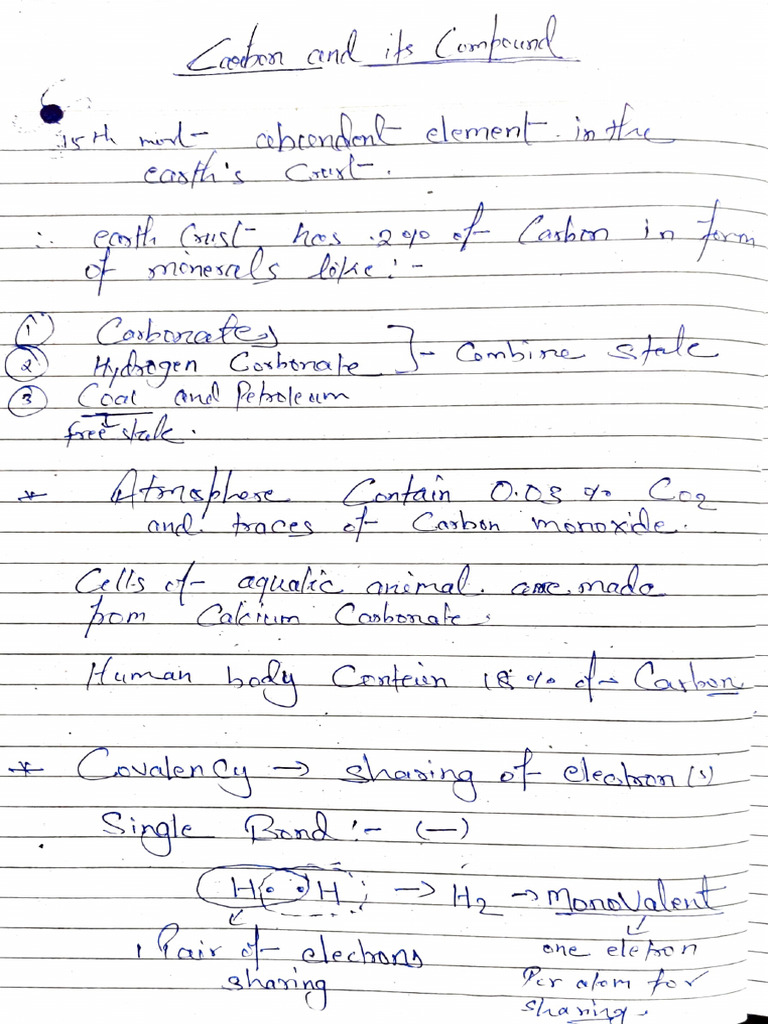 Carbon and its Compound
15th most abcendent element in the
earth's Crust.
∴ earth Crust has .2% of Carbon in form
of minerals like :-
① Carbonates
② Hydrogen Carbonate ]- Combine state
③ Coal and Petroleum
free state.
* Atmosphere Contain 0.03 % CO2
and traces of Carbon monoxide.
Cells of aquatic animal are made
from Calcium Carbonate.
Human body Contein 18 % of Carbon
* Covalency → sharing of electron(s)
Single Bond :- (—)
H • • H → H2 → Monovalent
1 Pair of electrons one eletron
sharing Per atom for
sharing.